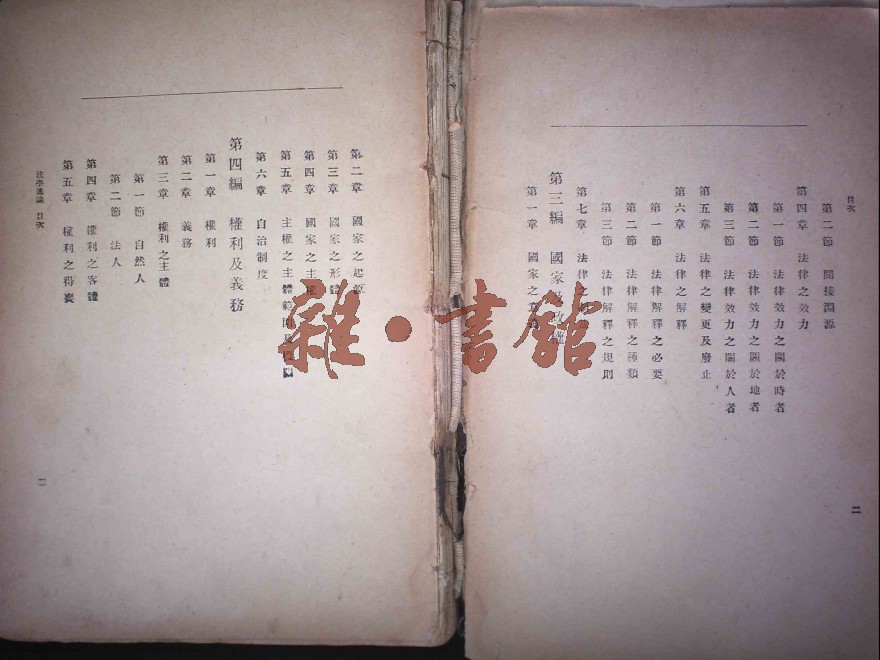 目次
第二節 間接淵源
第四章 法律之效力
第一節 法律效力之關於時者
第二節 法律效力之關於地者
第三節 法律效力之關於人者
第五章 法律之變更及廢止
第六章 法律之解釋
第一節 法律解釋之必要
第二節 法律解釋之種類
第三節 法律解釋之規則
第七章 法律之
第三編 國家及政體
第一章 國家之意義
二
第二章 國家之起源
第三章 國家之形體
第四章 國家之主權
第五章 主權之主體範圍及
第六章 自治制度
第四編 權利及義務
第一章 權利
第二章 義務
第三章 權利之主體
第一節 自然人
第二節 法人
第四章 權利之客體
第五章 權利之得喪
法學通論 目次
雜·書館